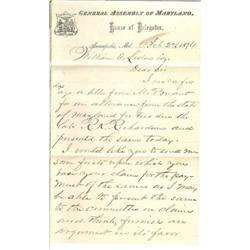 GENERAL ASSEMBLY OF MARYLAND,
House of Delegates,
Annapolis, Md. Feb 23d 1874
William E
Dear Sir
I
ago a letter from Mr Bryant
for an allowance from the state
of Maryland for fees due the
late R.R. Richardson and
presented the same today.
I would like you to send me
some facts upon which you
base your claim for the pay-
ment of the same as I may
be able to present the same
to the committee on claims
and thereby furnish an
argument in its favor